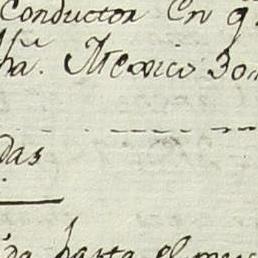 Conductor en q
ha. Mexico 30
das
da hasta el